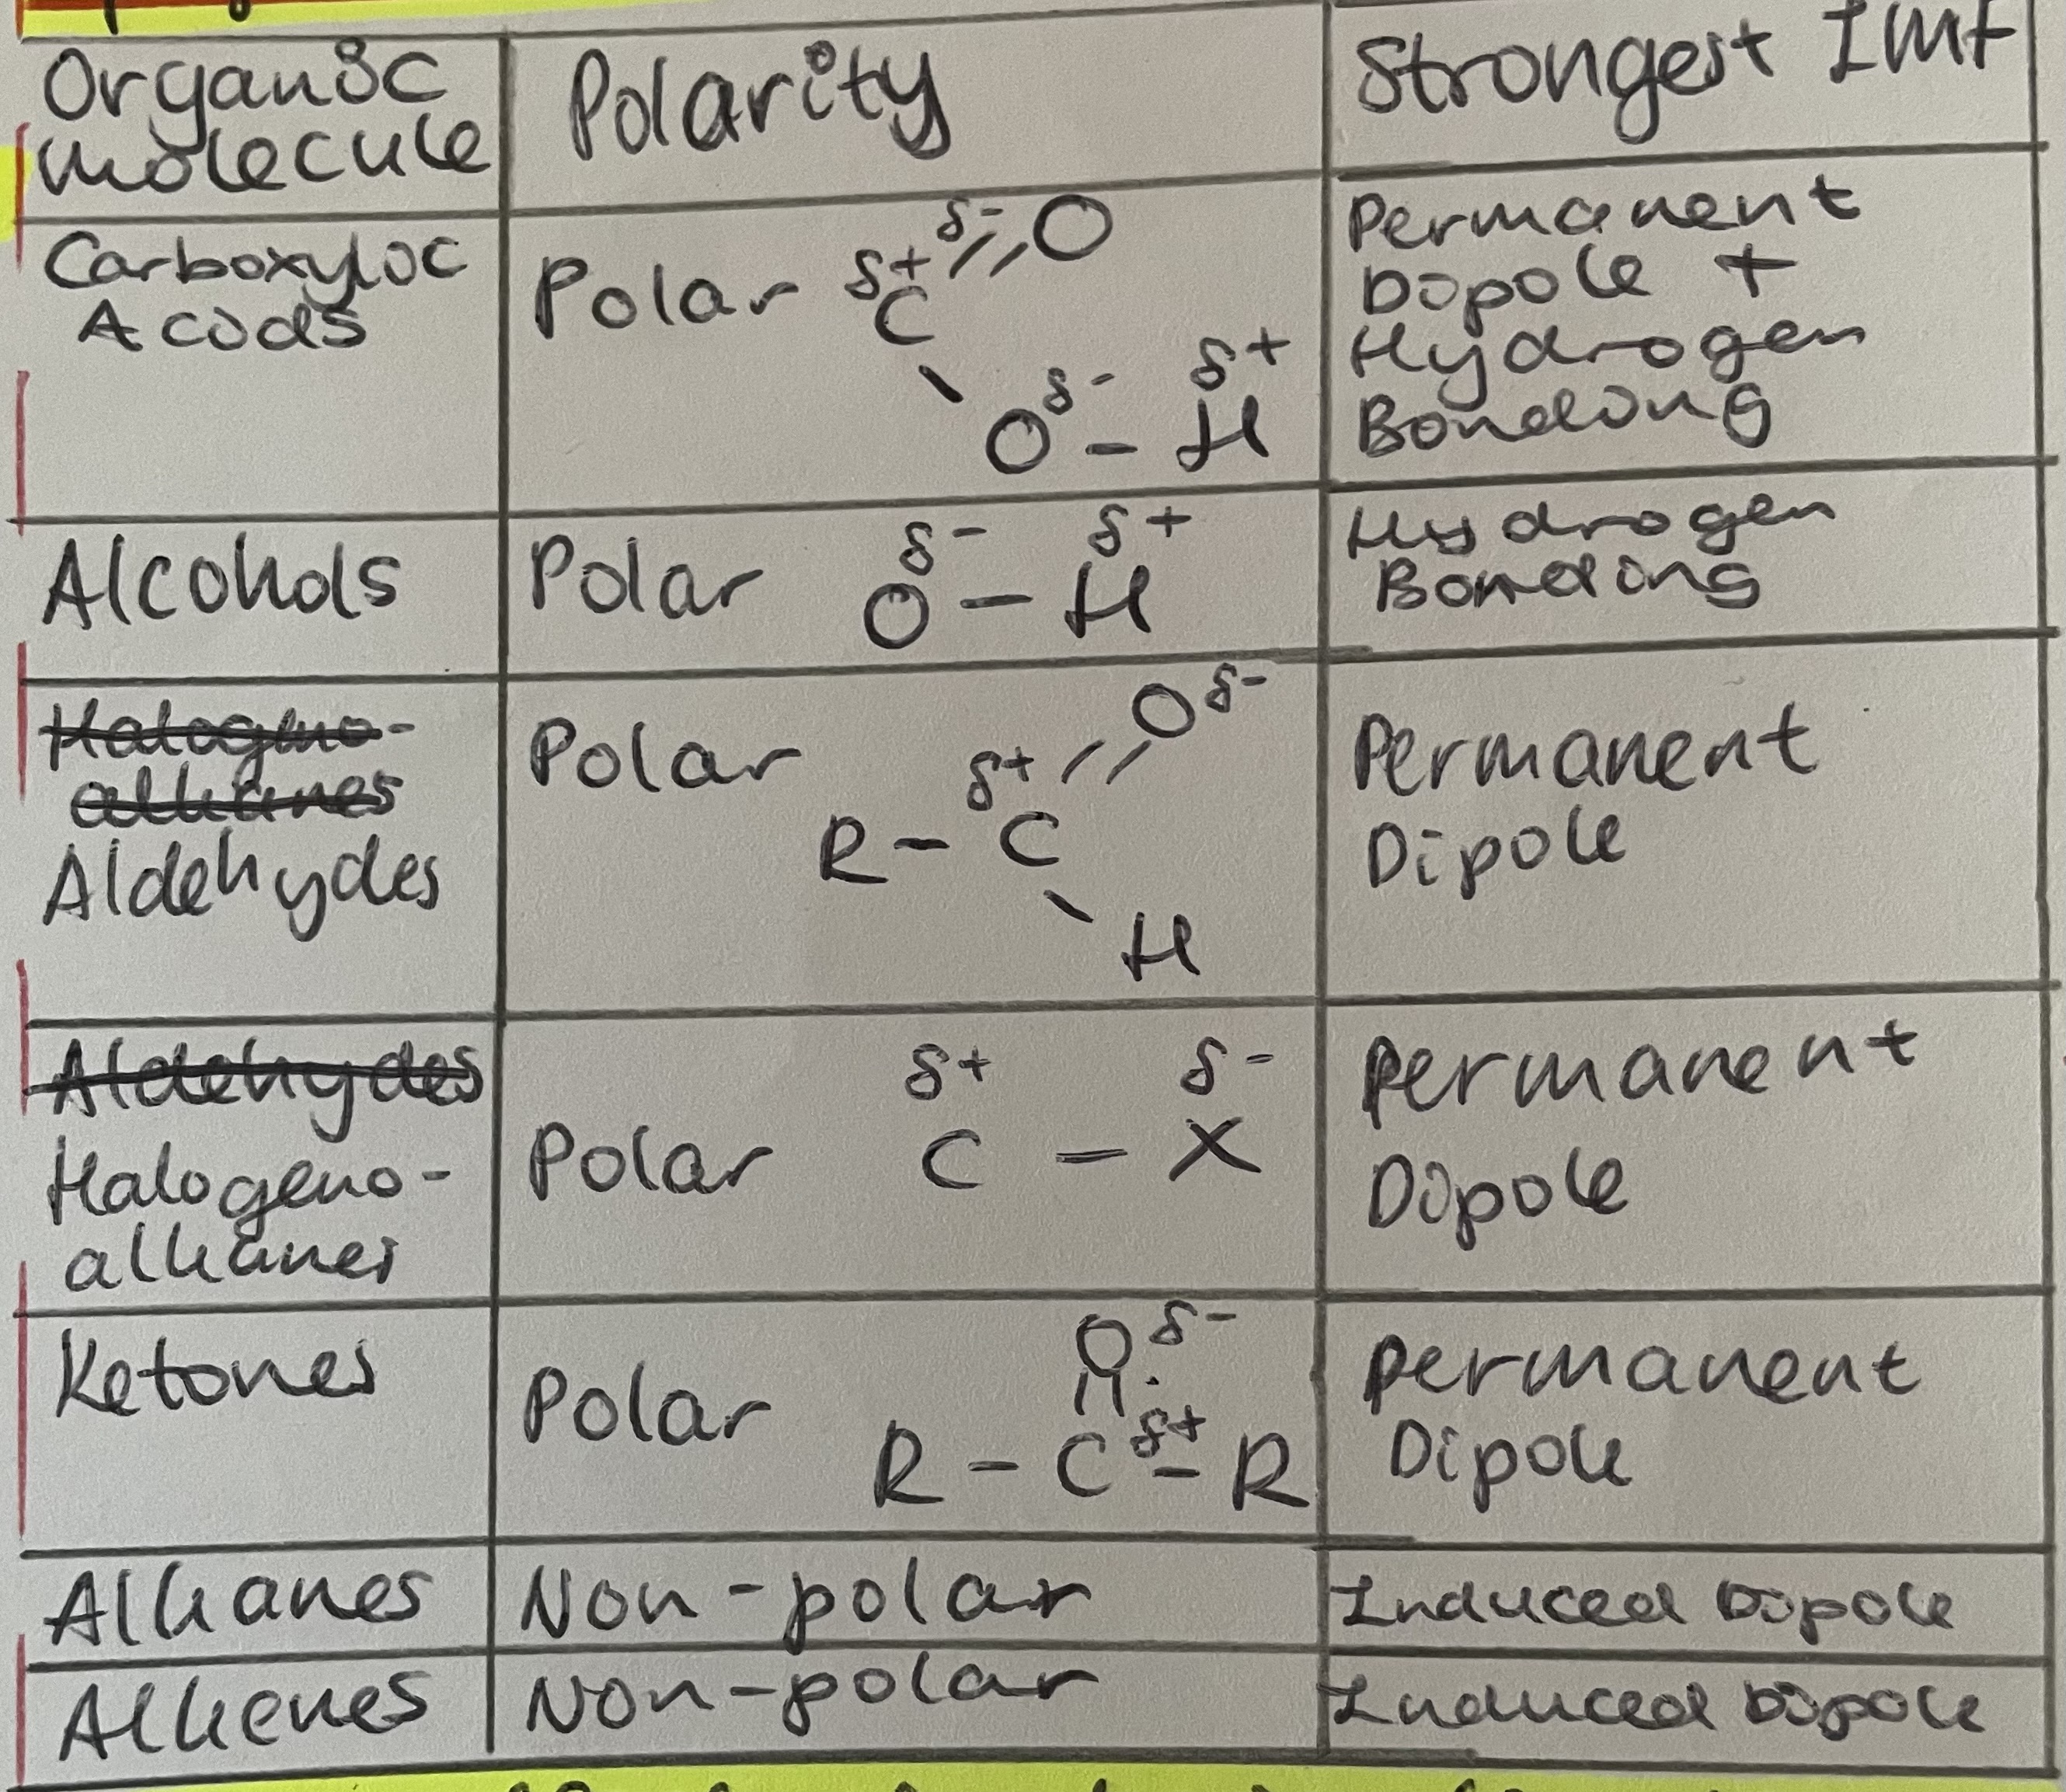 Organic
molecule
Polarity
Strongest IMF
Carboxylic
Acids
Polar
δ+ δ- O
C
O δ- - H δ+
Permanent
Dipole +
Hydrogen
Bonding
Alcohols
Polar
δ- δ+
O - H
Hydrogen
Bonding
Halogeno-
alkanes
Aldehydes
Polar
O δ-
δ+
R - C
H
Permanent
Dipole
Aldehydes
Halogeno-
alkanes
Polar
δ+ δ-
C - X
Permanent
Dipole
Ketones
Polar
O δ-
δ+
R - C - R
Permanent
Dipole
Alkanes
Non-polar
Induced Dipole
Alkenes
Non-polar
Induced Dipole